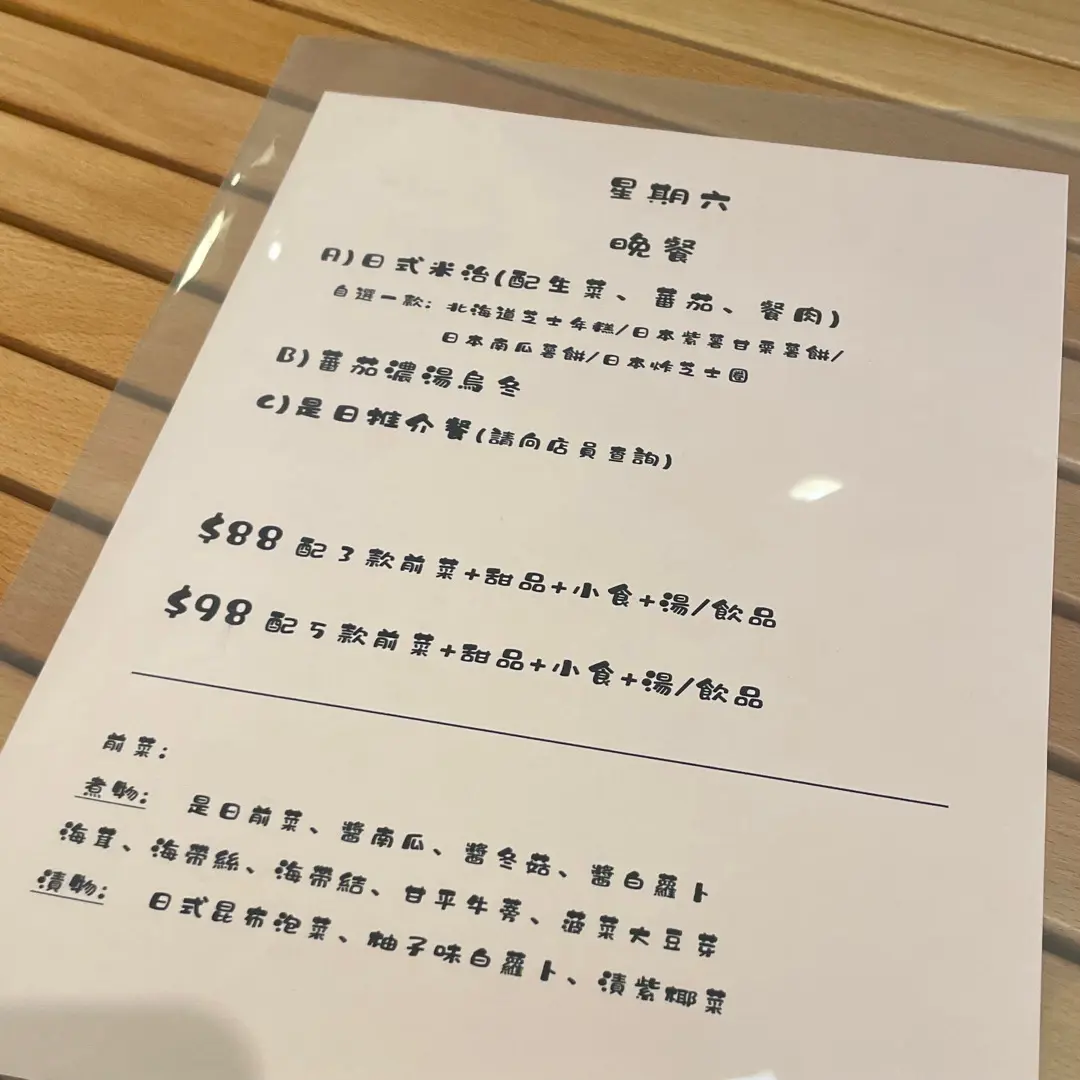 星期六
晚餐
A)日式米治(配生菜、蕃茄、餐肉)
自選一款: 北海道芝士年糕/日本紫薯甘栗薯餅/
日本南瓜薯餅/日本炸芝士圈
B)蕃茄濃湯烏冬
C)是日推介餐(請向店員查詢)
$88 配3款前菜+甜品+小食+湯/飲品
$98 配5款前菜+甜品+小食+湯/飲品
前菜:
煮物: 是日前菜、醬南瓜、醬冬菇、醬白蘿卜
海茸、海帶絲、海帶結、甘平牛蒡、菠菜大豆芽
漬物: 日式昆布泡菜、柚子味白蘿卜、漬紫椰菜